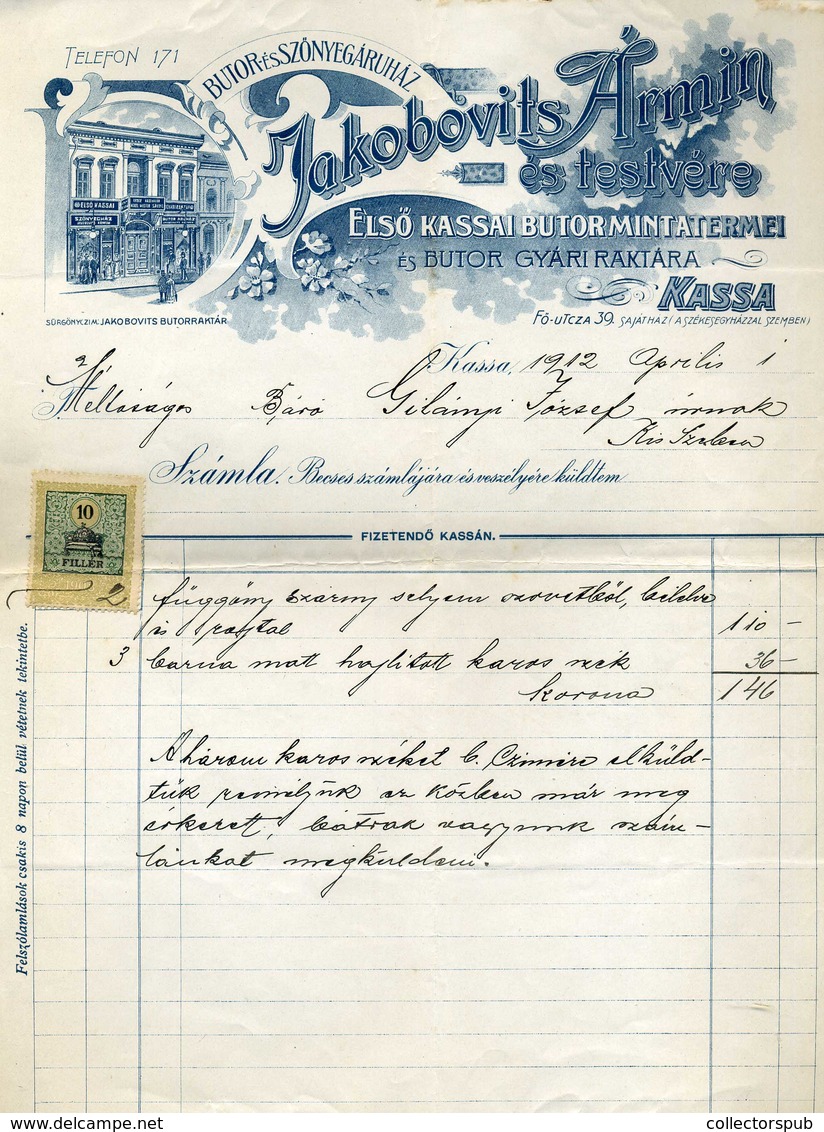 TELEFON 171
BUTOR-ÉS SZŐNYEGÁRUHÁZ
Jakobovits Ármin
és testvére
ELSŐ KASSAI BUTORMINTATERMEI
ÉS BUTOR GYÁRI RAKTÁRA
KASSA
ELSŐ KASSAI
SZŐNYEGHÁZ
SÜRGÖNYCZIM. JAKOBOVITS BUTORRAKTÁR
FŐ-UTCZA 39. SAJÁT HÁZ (A SZÉKESEGYHÁZZAL SZEMBEN)
Kassa, 1912 Április 1
Méltóságos Báró Gilányi József úrnak
Kis
Számla. Becses számlájára és veszélyére küldtem
10
FILLÉR
FIZETENDŐ KASSÁN.
2 függöny szárny selyem szövetből, bélelve
és rojttal 110 –
3 barna matt hajlitott karos szék 36 –
korona 146
A három karos széket b. Czimére elküld-
tük reméljük az közben már meg
érkezett, bátrak vagyunk szám-
lánkat megküldeni.
Felszólamlások csakis 8 napon belül vétetnek tekintetbe.
collectorspub